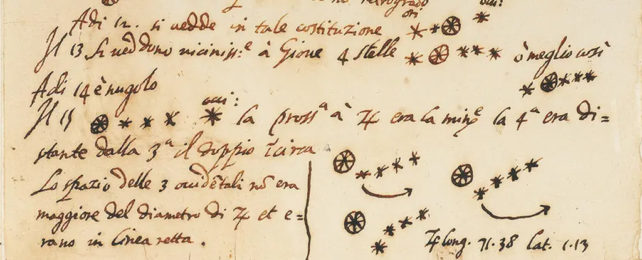 retrogrado
Adi 12. si vedde in tale costituzione
Il 13 si veddono vicinissᵉ à Giove 4 stelle ò meglio così
Adi 14 è nugolo
Il 15 occi: la prossᵃ à ♃ era la minᵉ la 4ᵃ era di=
stante dalla 3ᵃ il doppio circa
Lo spazio delle 3 occidẽtali nõ era
maggiore del diametro di ♃ et e=
rano in linea retta.
♃ long. 71.38 lat. 1.13